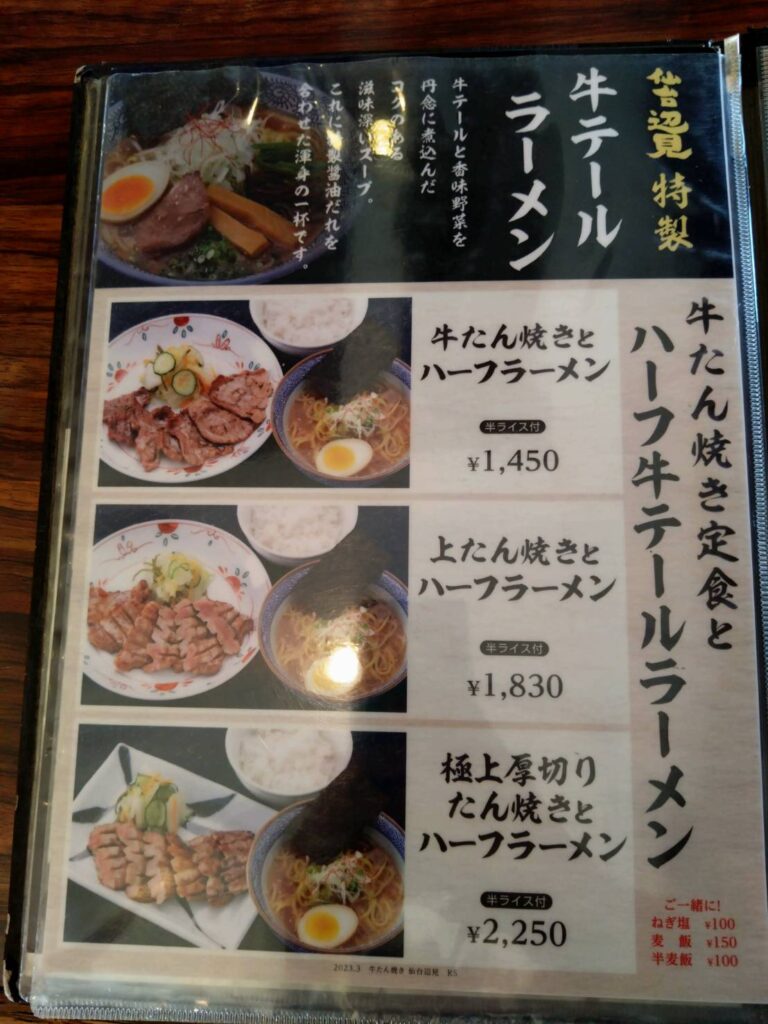 仙台辺見 特製
牛テール
ラーメン
牛テールと香味野菜を
丹念に煮込んだ
コクのある
滋味深いスープ。
これに特製醤油だれを
合わせた渾身の一杯です。
牛たん焼き定食と
ハーフ牛テールラーメン
牛たん焼きと
ハーフラーメン
半ライス付
¥1,450
上たん焼きと
ハーフラーメン
半ライス付
¥1,830
極上厚切り
たん焼きと
ハーフラーメン
半ライス付
¥2,250
ご一緒に!
ねぎ塩 ¥100
麦 飯 ¥150
半麦飯 ¥100
2023.3 牛たん焼き 仙台辺見 R5